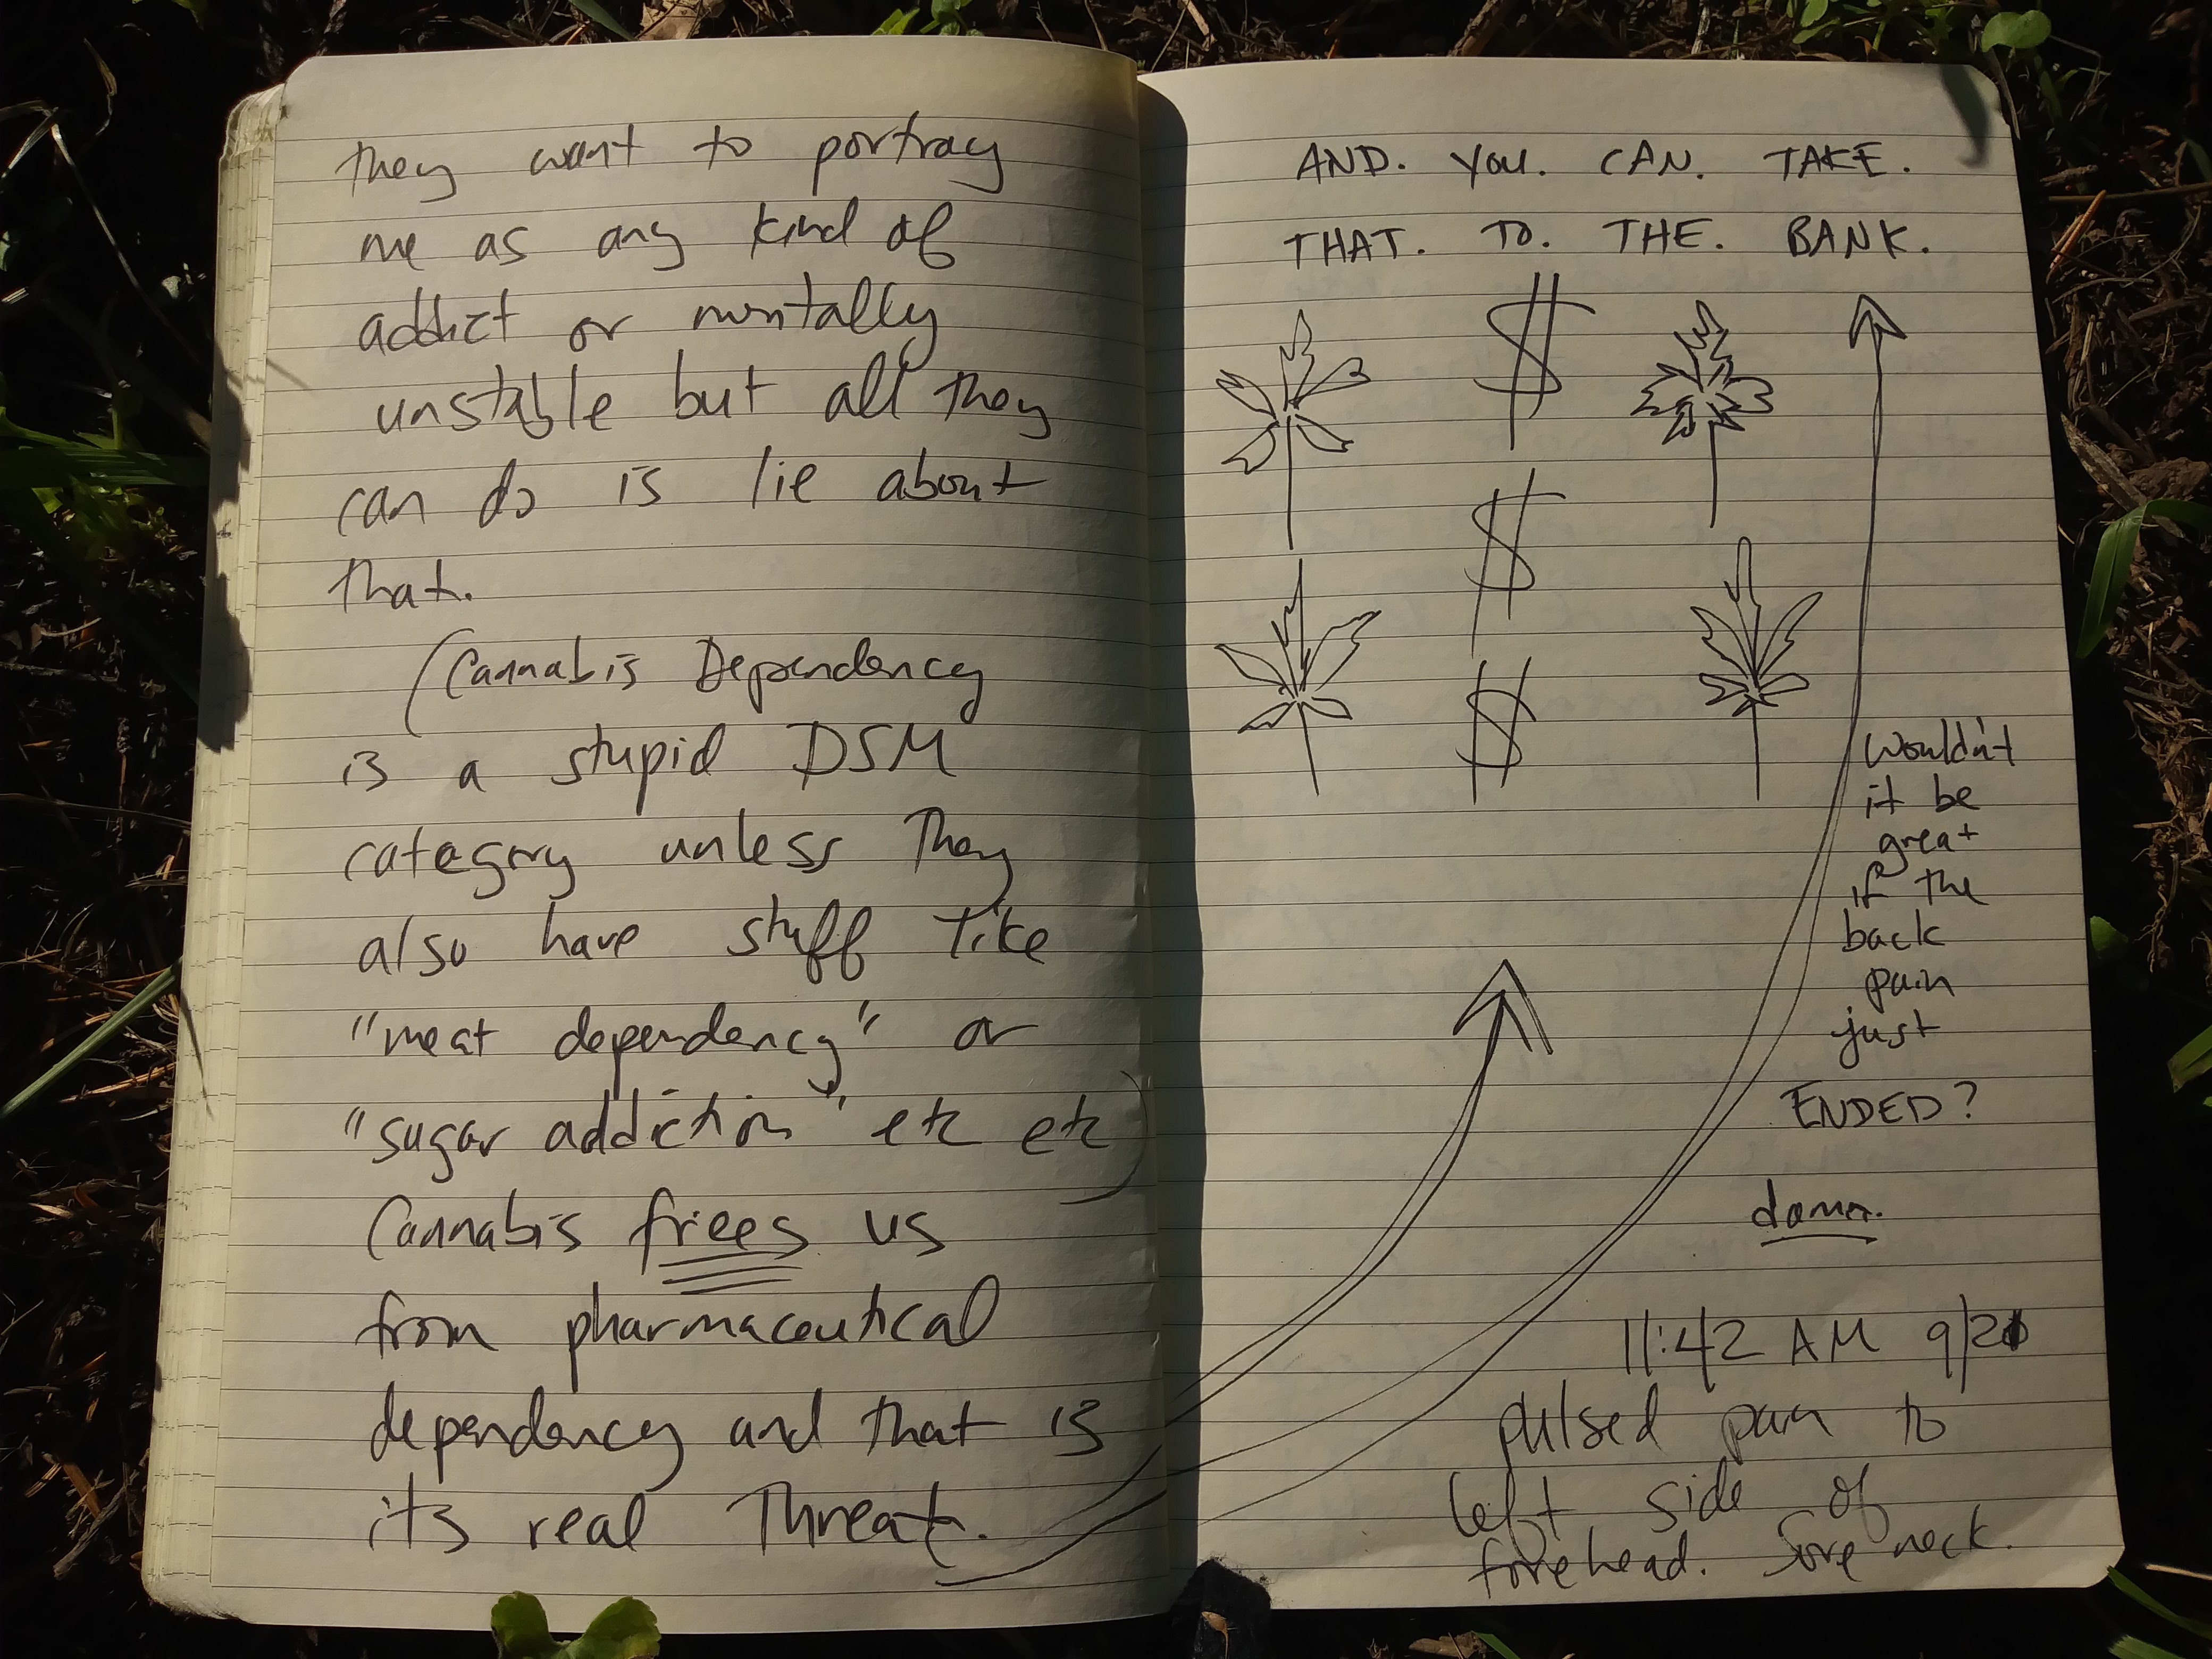 they want to portray
me as any kind of
addict or mentally
unstable but all they
can do is lie about
that.
(Cannabis Dependency
is a stupid DSM
category unless they
also have stuff like
"meat dependency" or
"sugar addiction" etc etc)
Cannabis frees us
from pharmaceutical
dependency and that is
its real Threat.
AND. YOU. CAN. TAKE.
THAT. TO. THE. BANK.
$
$
$
Wouldn't
it be
great
if the
back
pain
just
ENDED?
damn.
11:42 AM 9/21
pulsed pain to
left side of
forehead. Sore neck.